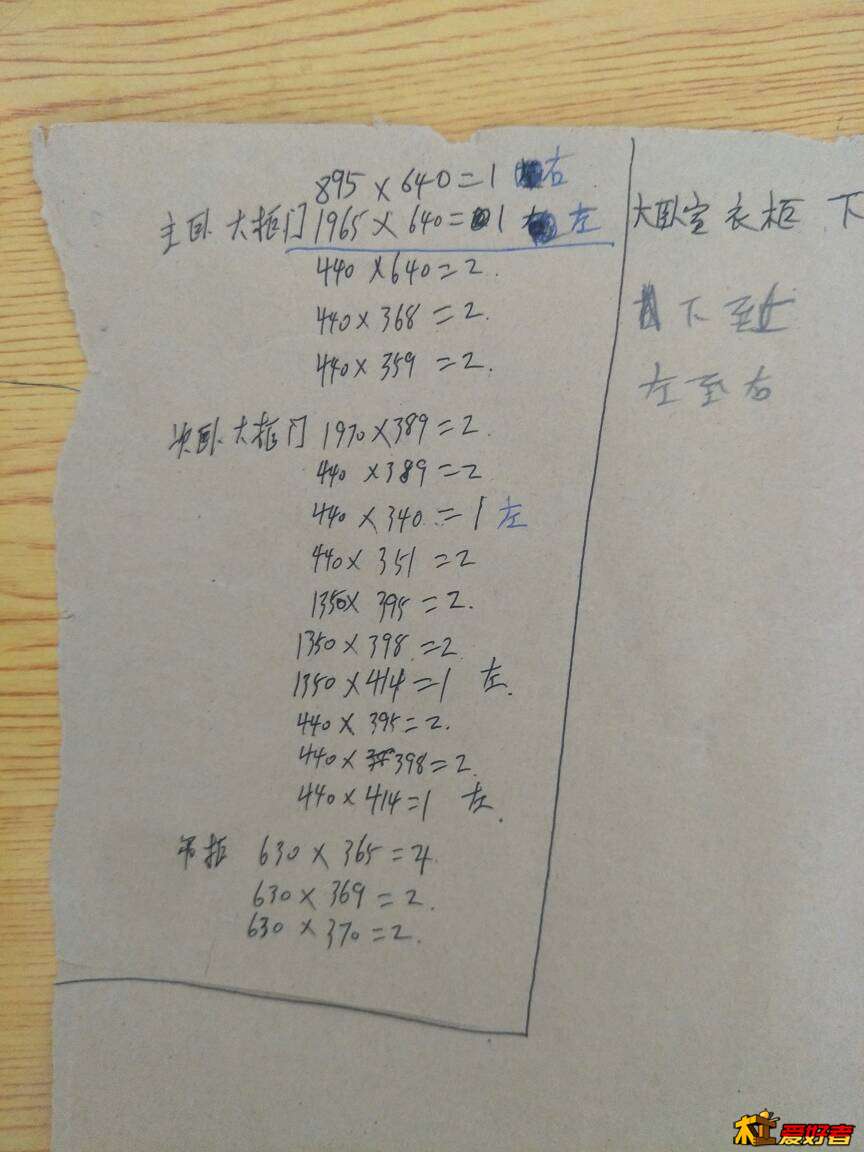 895×640=1 右
主卧大柜门 1965×640=1 左
440×640=2.
440×368=2.
440×359=2.
次卧大柜门 1970×389=2.
440×389=2
440×340=1 左
440×351=2
1350×395=2.
1350×398=2.
1350×414=1 左.
440×395=2.
440×398=2.
440×414=1 左.
吊柜 630×365=4.
630×369=2.
630×370=2.
大卧室衣柜 下
下至
左至右
木工爱好者